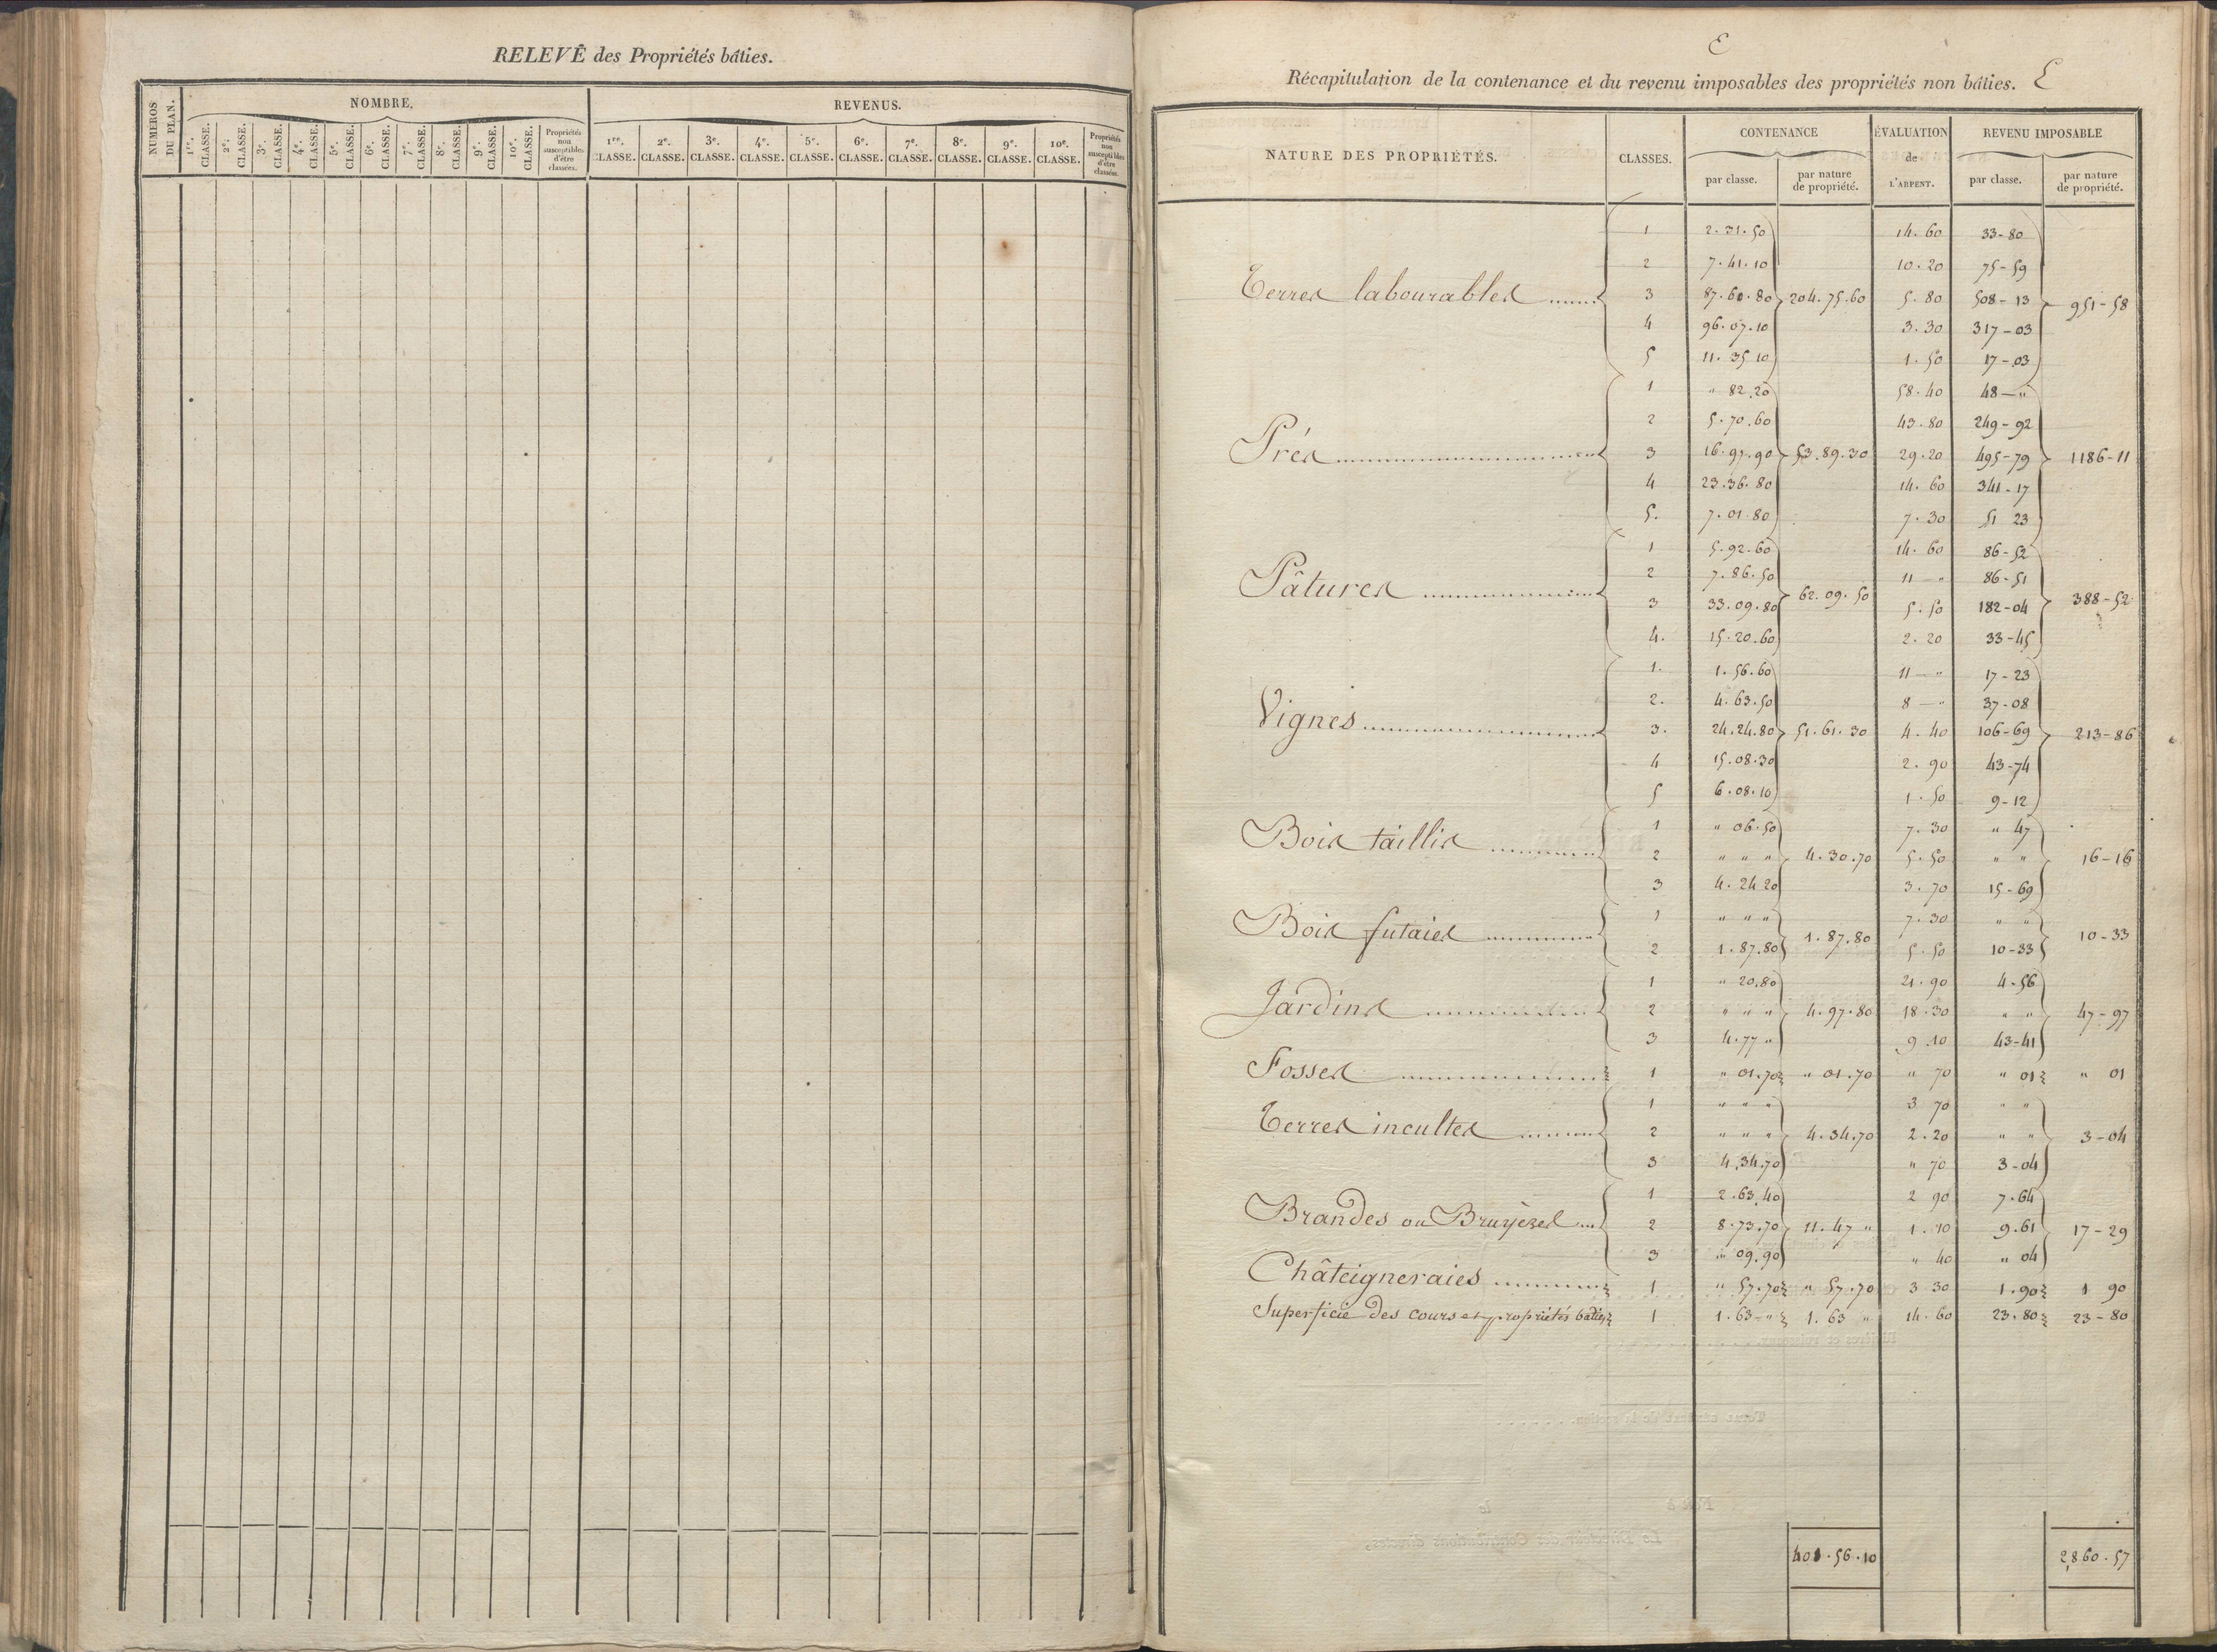 RELEVÉ des Propriétés bâties.
NUMEROS DU PLAN.
NOMBRE.
REVENUS.
1re. CLASSE. 2e. CLASSE. 3e. CLASSE. 4e. CLASSE. 5e. CLASSE. 6e. CLASSE. 7e. CLASSE. 8e. CLASSE. 9e. CLASSE. 10e. CLASSE. Propriétés non susceptibles d'être classées.
1re. CLASSE. 2e. CLASSE. 3e. CLASSE. 4e. CLASSE. 5e. CLASSE. 6e. CLASSE. 7e. CLASSE. 8e. CLASSE. 9e. CLASSE. 10e. CLASSE. Propriétés non susceptibles d'être classées.
E
Récapitulation de la contenance et du revenu imposables des propriétés non bâties. E
NATURE DES PROPRIÉTÉS. CLASSES. CONTENANCE ÉVALUATION de L'ARPENT. REVENU IMPOSABLE
par classe. par nature de propriété. par classe. par nature de propriété.
1 2.31.50 14.60 33-80
2 7.41.10 10.20 75-59
Terres labourables 3 87.60.80 204.75.60 5.80 508-13 951-58
4 96.07.10 3.30 317-03
5 11.35.10 1.50 17-03
1 " 82.20 58.40 48-"
2 5.70.60 43.80 249-92
Prés 3 16.97.90 53.89.30 29.20 495-79 1186-11
4 23.36.80 14.60 341-17
5. 7.01.80 7.30 51 23
1 5.92.60 14.60 86-52
2 7.86.50 11-" 86-51
Pâtures 3 33.09.80 62.09.50 5.50 182-04 388-52
4. 15.20.60 2.20 33-45
1. 1.56.60 11-" 17-23
2. 4.63.50 8-" 37-08
Vignes 3. 24.24.80 51.61.30 4.40 106-69 213-86
4 15.08.30 2.90 43-74
5 6.08.10 1.50 9-12
Bois taillis 1 " 06.50 7.30 " 47
2 " " " 4.30.70 5.50 " " 16-16
3 4.24 20 3.70 15-69
Bois futaies 1 " " " 7.30 " "
2 1.87.80 1.87.80 5.50 10-33 10-33
1 " 20.80 21.90 4-56
Jardins 2 " " " 4.97.80 18.30 " " 47-97
3 4.77 " 9.10 43-41
Fosses 1 " 01.70 " 01.70 " 70 " 01 " 01
1 " " " 3 70 " "
Terres incultes 2 " " " 4.34.70 2.20 " " 3-04
3 4.34.70 " 70 3-04
1 2.63.40 2 90 7.64
Brandes ou Bruyères 2 8.73.70 11.47 " 1.10 9.61 17-29
3 " 09.90 " 40 " 04
Châteigneraies 1 " 57.70 " 57.70 3 30 1.90 1 90
Superficie des cours et propriétés baties 1 1.63-" 1.63 " 14.60 23.80 23-80
401.56.10 2,860.57